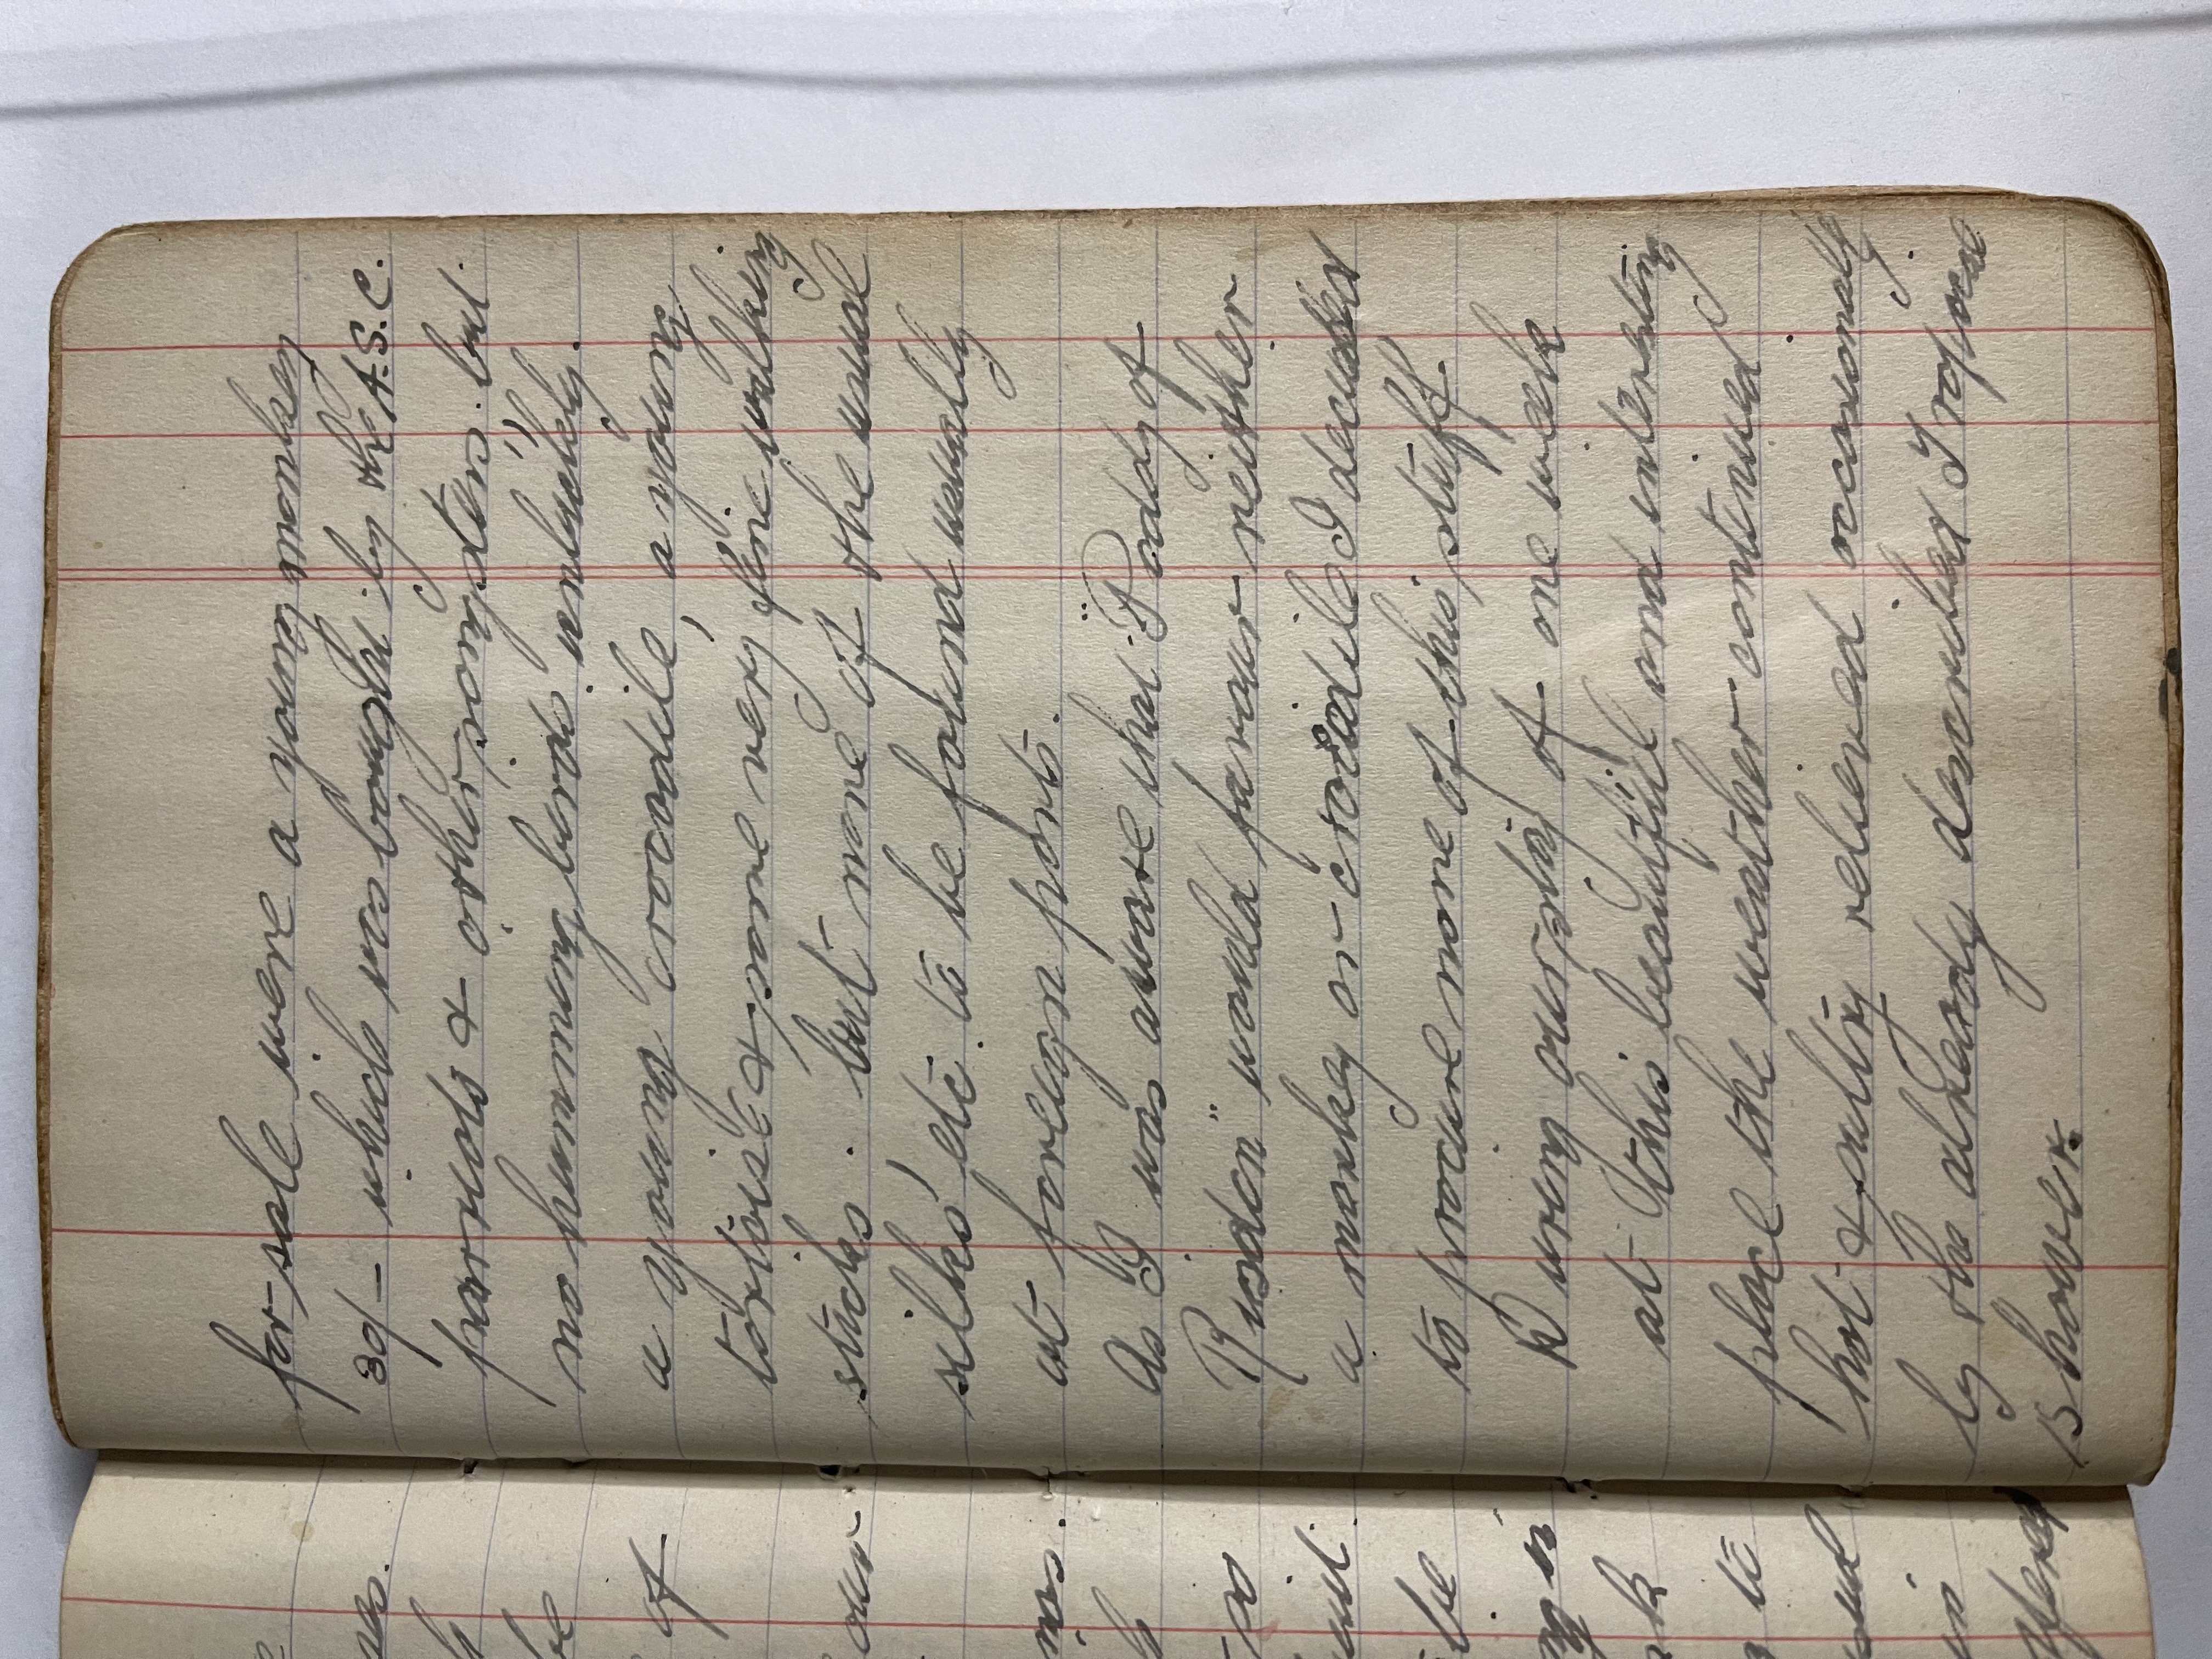 for sale were a young monkey
30/- which was bought by the A.S.C.
parrots & other songsters. but
no humming birds unluckily.
a young crocodile, a young
tortoise & some very fine walking
sticks. but none of the usual
silks, etc. to be found usually
at foreign ports.
As I was aware that "Paddy of
Risdon" would favour neither
a monkey or crocodile I decided
to procure none of this stuff
During our stay of one week
at this beautiful and interesting
place the weather continued
hot & sultry relieved occasionally
by the already described Tropical
Shower.
of
our
be
to